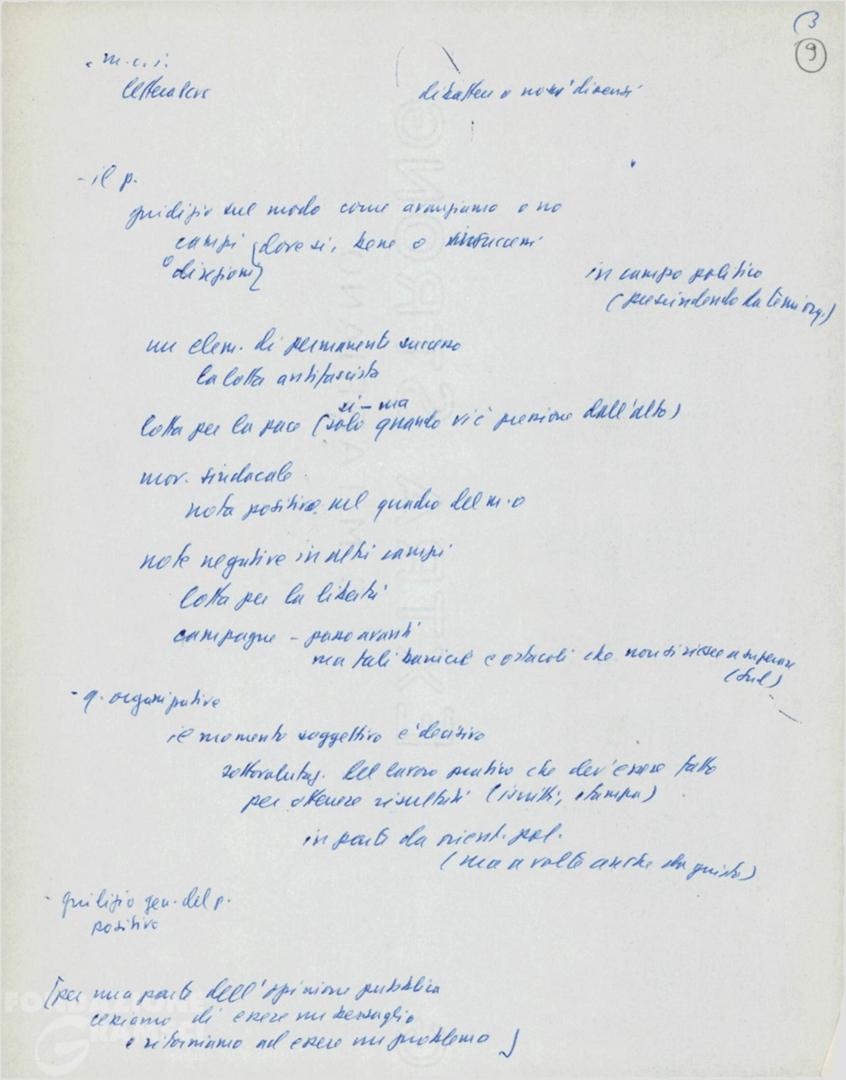 3
9
- m.c.i.
letteratura dibattere o nostri dissensi
- il p.
giudizio sul modo come avanziamo o no
campi {dove si, bene o insuccessi
o direzioni}
in campo politico
(prescindendo da temi org.)
un elem. di permanente successo
la lotta antifascista
si - ma
lotta per la pace (solo quando vi è pressione dall'alto)
mov. sindacale
nota positiva nel quadro del m.o
note negative in altri campi
lotta per la libertà
campagne - passo avanti
ma tali barriere e ostacoli che non si riesce a superare
(Sud)
- q. organizzative
il momento soggettivo è decisivo
sottovalutaz. del lavoro pratico che dev'essere fatto
per ottenere risultati (iscritti, stampa)
in parte da orient. pol.
(ma a volte anche da )
- giudizio gen. del p.
positivo
[per una parte dell'opinione pubblica
cessiamo di essere un bersaglio
e ritorniamo ad essere un problema]
FONDAZIONE
GRAMSCI